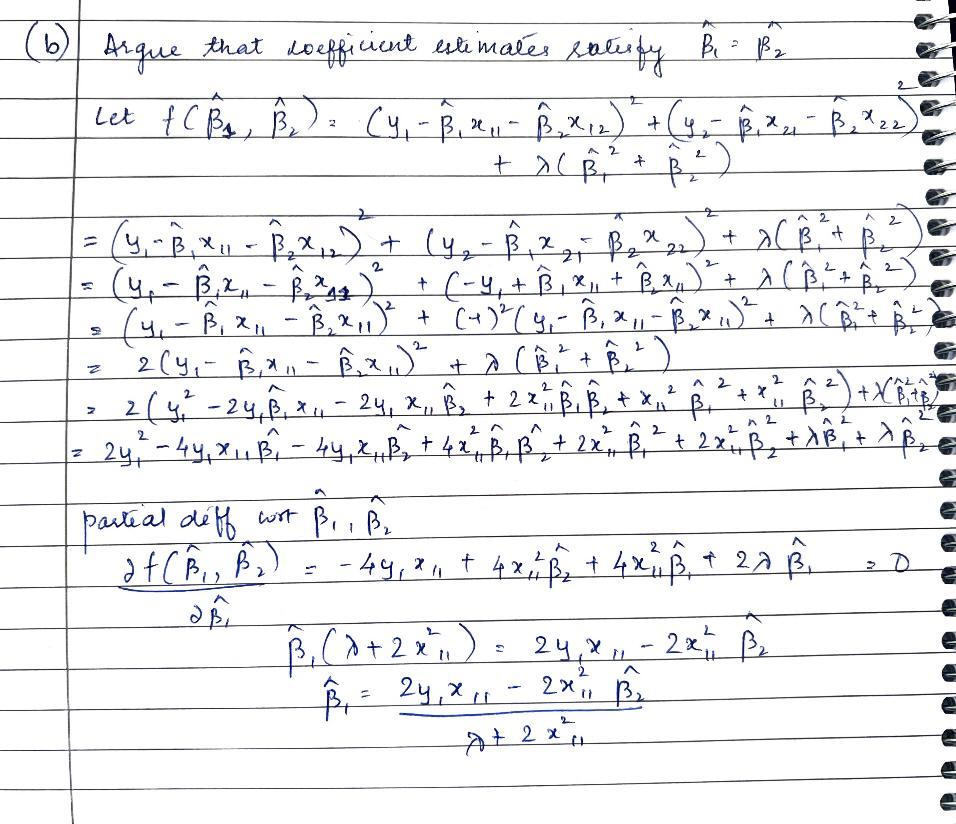 (b) Argue that coefficient estimates satisfy β̂₁ = β̂₂
Let f(β̂₁, β̂₂) = (y₁ - β̂₁x₁₁ - β̂₂x₁₂)² + (y₂ - β̂₁x₂₁ - β̂₂x₂₂)²
+ λ(β̂₁² + β̂₂²)
= (y₁ - β̂₁x₁₁ - β̂₂x₁₂)² + (y₂ - β̂₁x₂₁ - β̂₂x₂₂)² + λ(β̂₁² + β̂₂²)
= (y₁ - β̂₁x₁₁ - β̂₂x₁₁)² + (-y₁ + β̂₁x₁₁ + β̂₂x₁₁)² + λ(β̂₁² + β̂₂²)
= (y₁ - β̂₁x₁₁ - β̂₂x₁₁)² + (-1)²(y₁ - β̂₁x₁₁ - β̂₂x₁₁)² + λ(β̂₁² + β̂₂²)
= 2(y₁ - β̂₁x₁₁ - β̂₂x₁₁)² + λ(β̂₁² + β̂₂²)
= 2(y₁² - 2y₁β̂₁x₁₁ - 2y₁x₁₁β̂₂ + 2x₁₁²β̂₁β̂₂ + x₁₁²β̂₁² + x₁₁²β̂₂²) + λ(β̂₁² + β̂₂²)
= 2y₁² - 4y₁x₁₁β̂₁ - 4y₁x₁₁β̂₂ + 4x₁₁²β̂₁β̂₂ + 2x₁₁²β̂₁² + 2x₁₁²β̂₂² + λβ̂₁² + λβ̂₂²
partial diff wrt β̂₁, β̂₂
∂f(β̂₁, β̂₂) = -4y₁x₁₁ + 4x₁₁²β̂₂ + 4x₁₁²β̂₁ + 2λβ̂₁ = 0
∂β̂₁
β̂₁(λ + 2x₁₁²) = 2y₁x₁₁ - 2x₁₁²β̂₂
β̂₁ = 2y₁x₁₁ - 2x₁₁²β̂₂
λ + 2x₁₁²